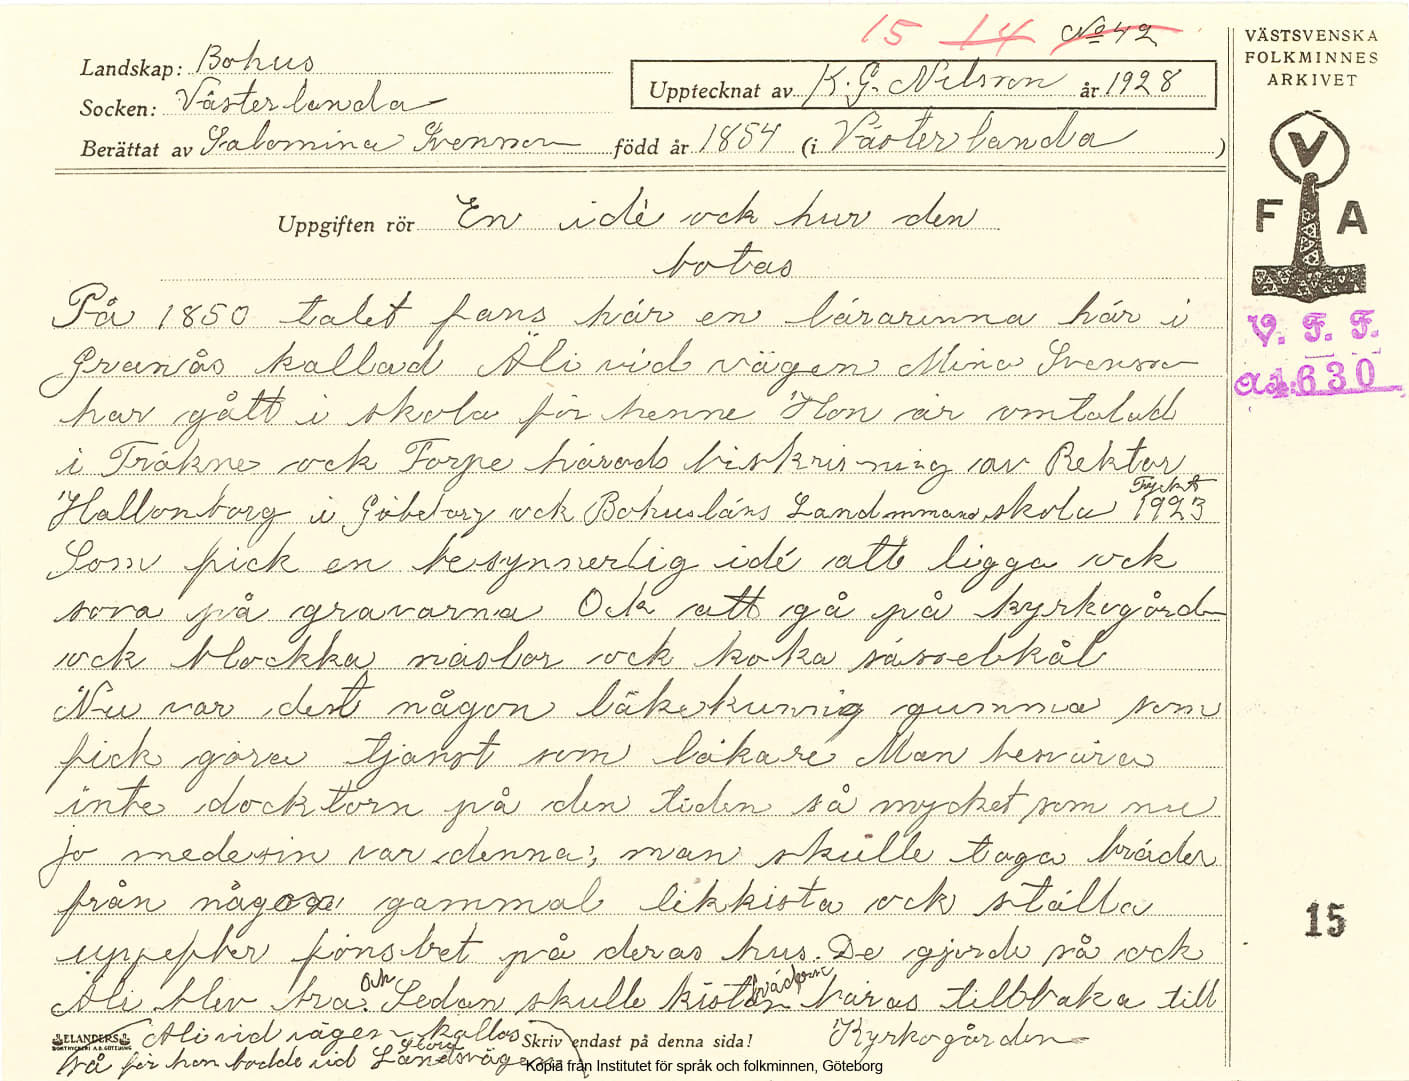 15 14 No 42
Landskap: Bohus
Upptecknat av K. G. Nilsson år 1928
Socken: Västerlanda
Berättat av Salomina Svensson född år 1854 (i Västerlanda )
VÄSTSVENSKA
FOLKMINNES
ARKIVET
V
F A
V. F. F.
1630
15
Uppgiften rör En idé ock hur den
botas
På 1850 talet fans här en lärarinna här i
Grenås kallad Äli vid vägen Mina Svensson
har gått i skola för henne Hon är omtalad
i Träkne ock Forpe härads biskrisning av Rektor
Tryckt
Hallonborg i Göteborg ock Bohusläns Landmmans skola 1923
Som fick en besynnerlig idé att ligga ock
sova på gravarna Ock att gå på kyrkogård
ock blockka näslor ock koka nässelkål
Nu var dest någon läkekunnig gumma som
fick göra tjänst som läkare Man besvära
inte docktorn på den tiden så mycket som nu
jo medesin var denna; man skulle taga bräder
från någon gammal likkista ock ställa
uppefter fönstret på deras hus. De gjorde så ock
Äli blev bra. Ock Sedan skulle kistan bräderna bäras tillbaka till
Kyrkogården
Äli vid vägen kallas
så för hon bodde vid stora Landsvägen
ELANDERS
BOKTRYCKERI A.B. GÖTEBORG
Skriv endast på denna sida!
Kopia från Institutet för språk och folkminnen, Göteborg